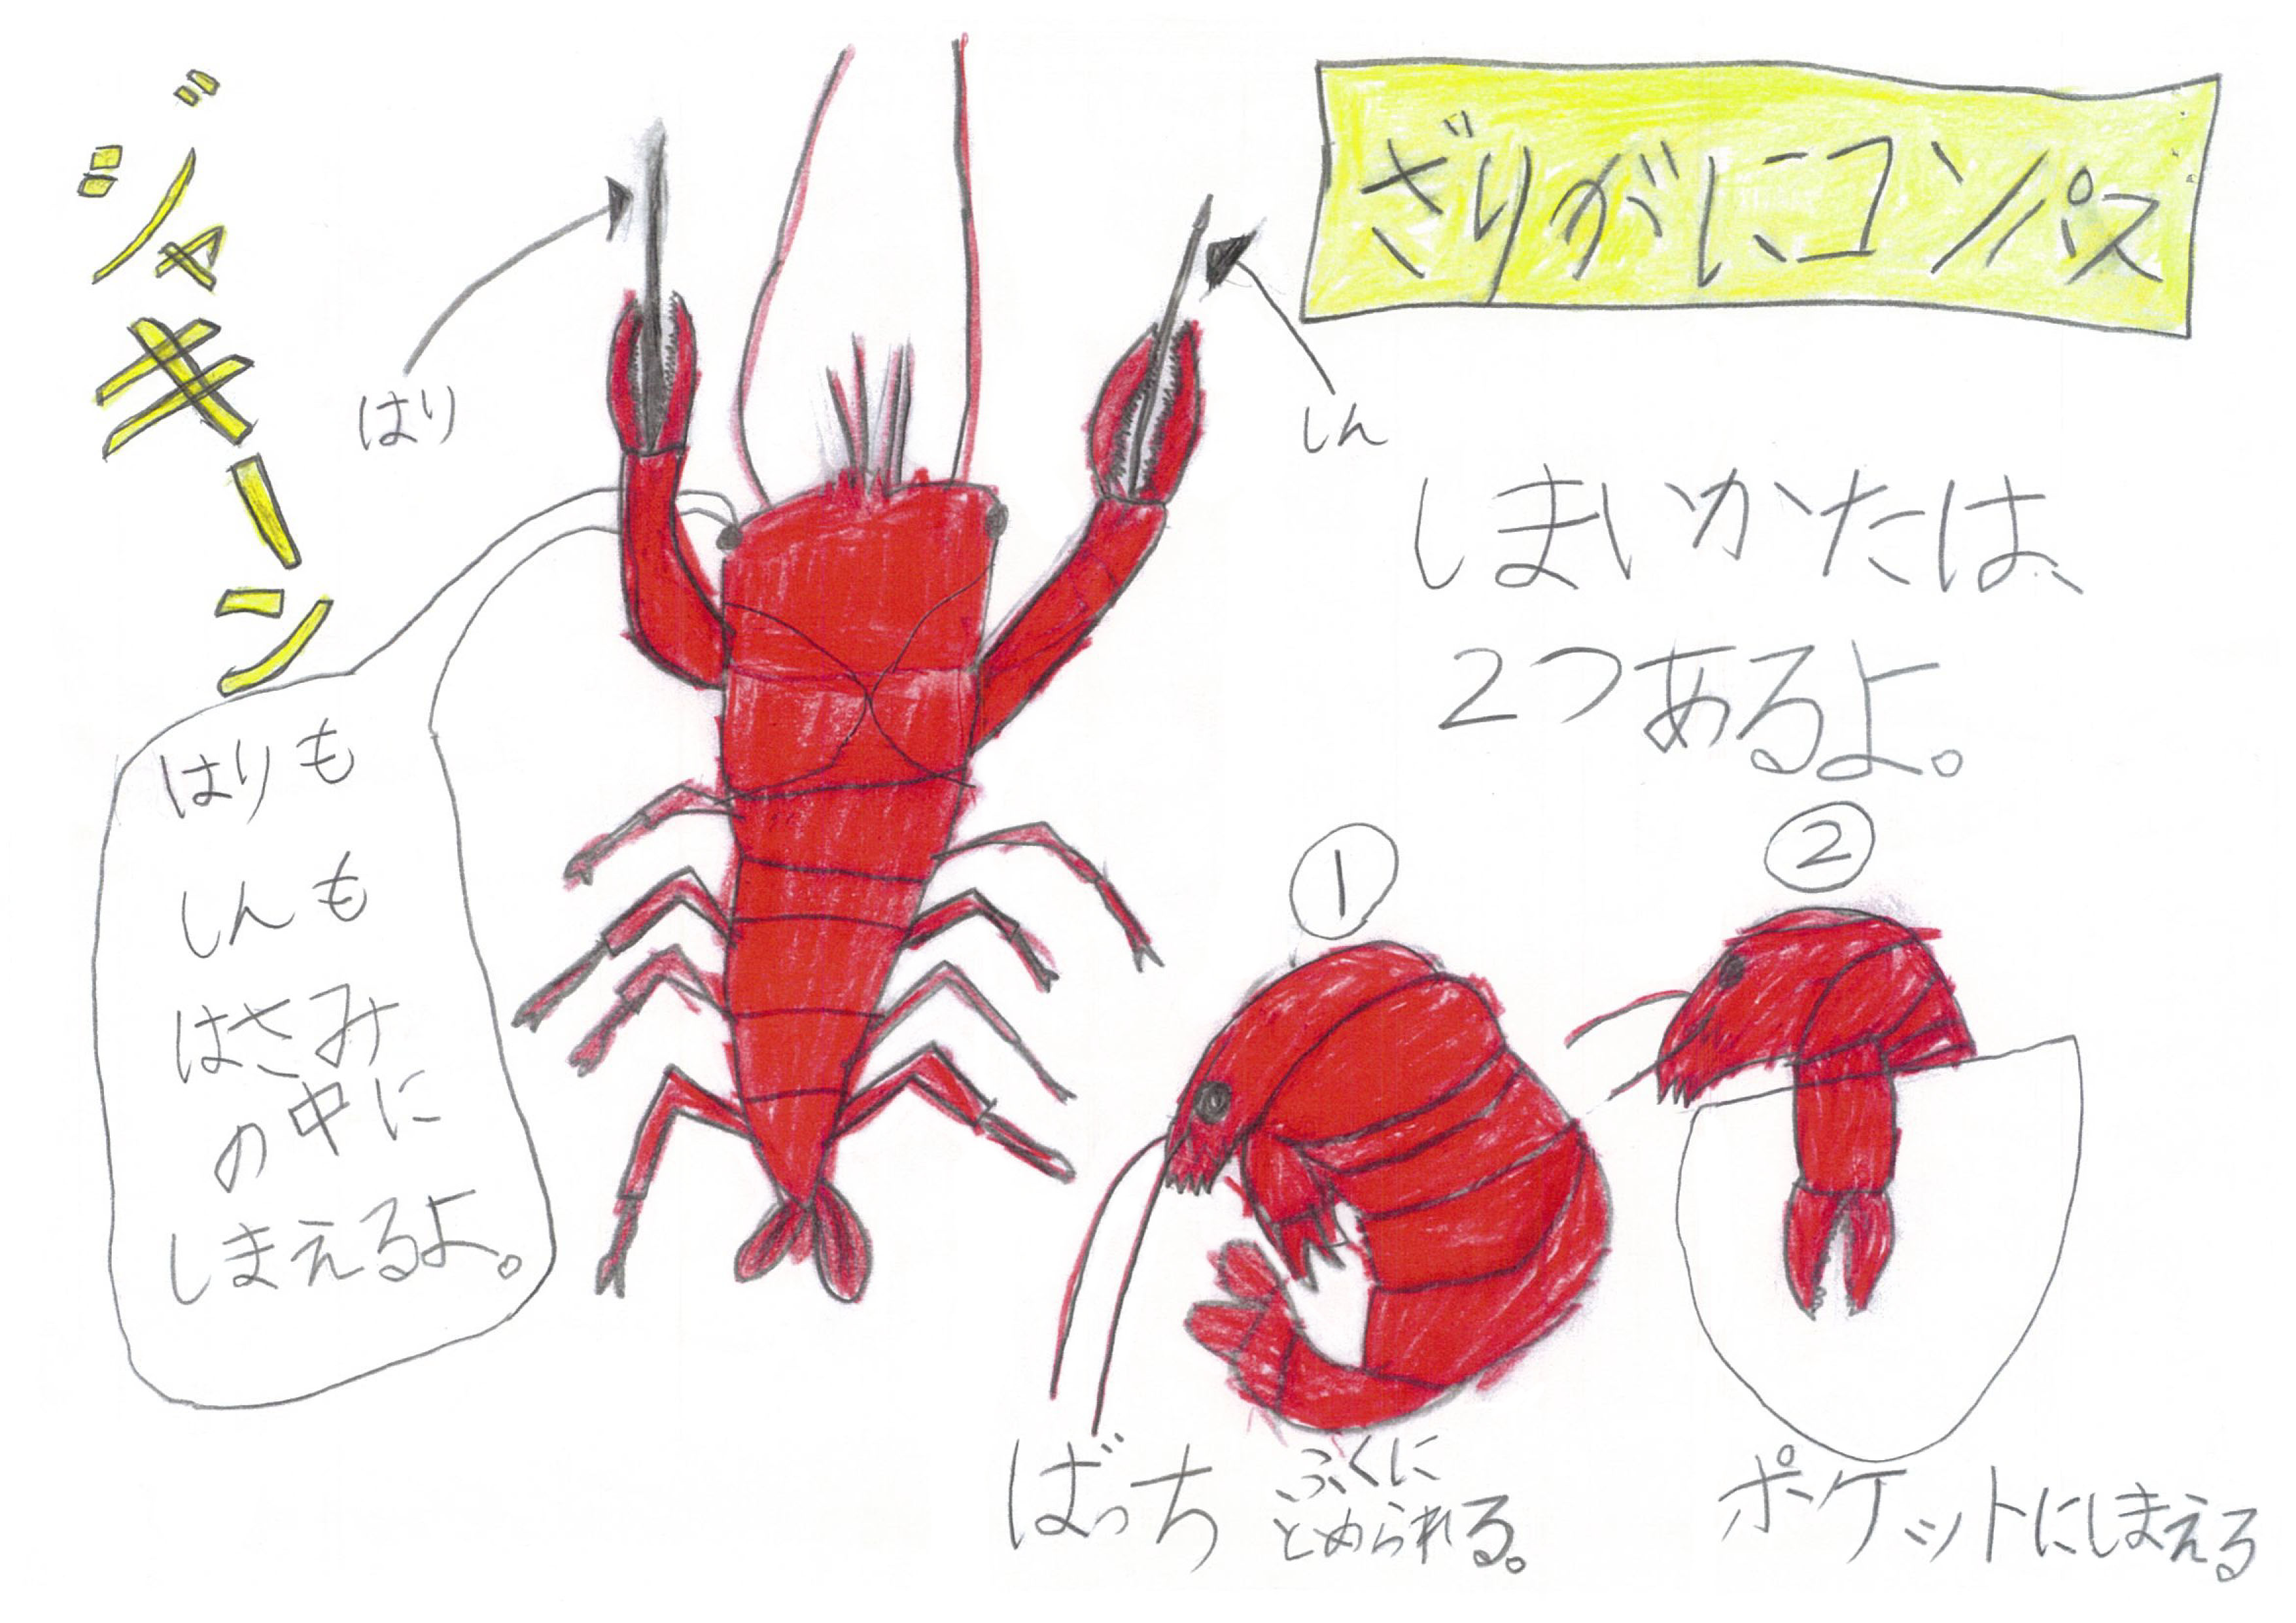 ざりがにコンパス
ジャキーン
はり
しん
はりも
しんも
はさみ
の中に
しまえるよ。
しまいかたは、
2つあるよ。
①
②
ばっち
ふくに
とめられる。
ポケットにしまえる